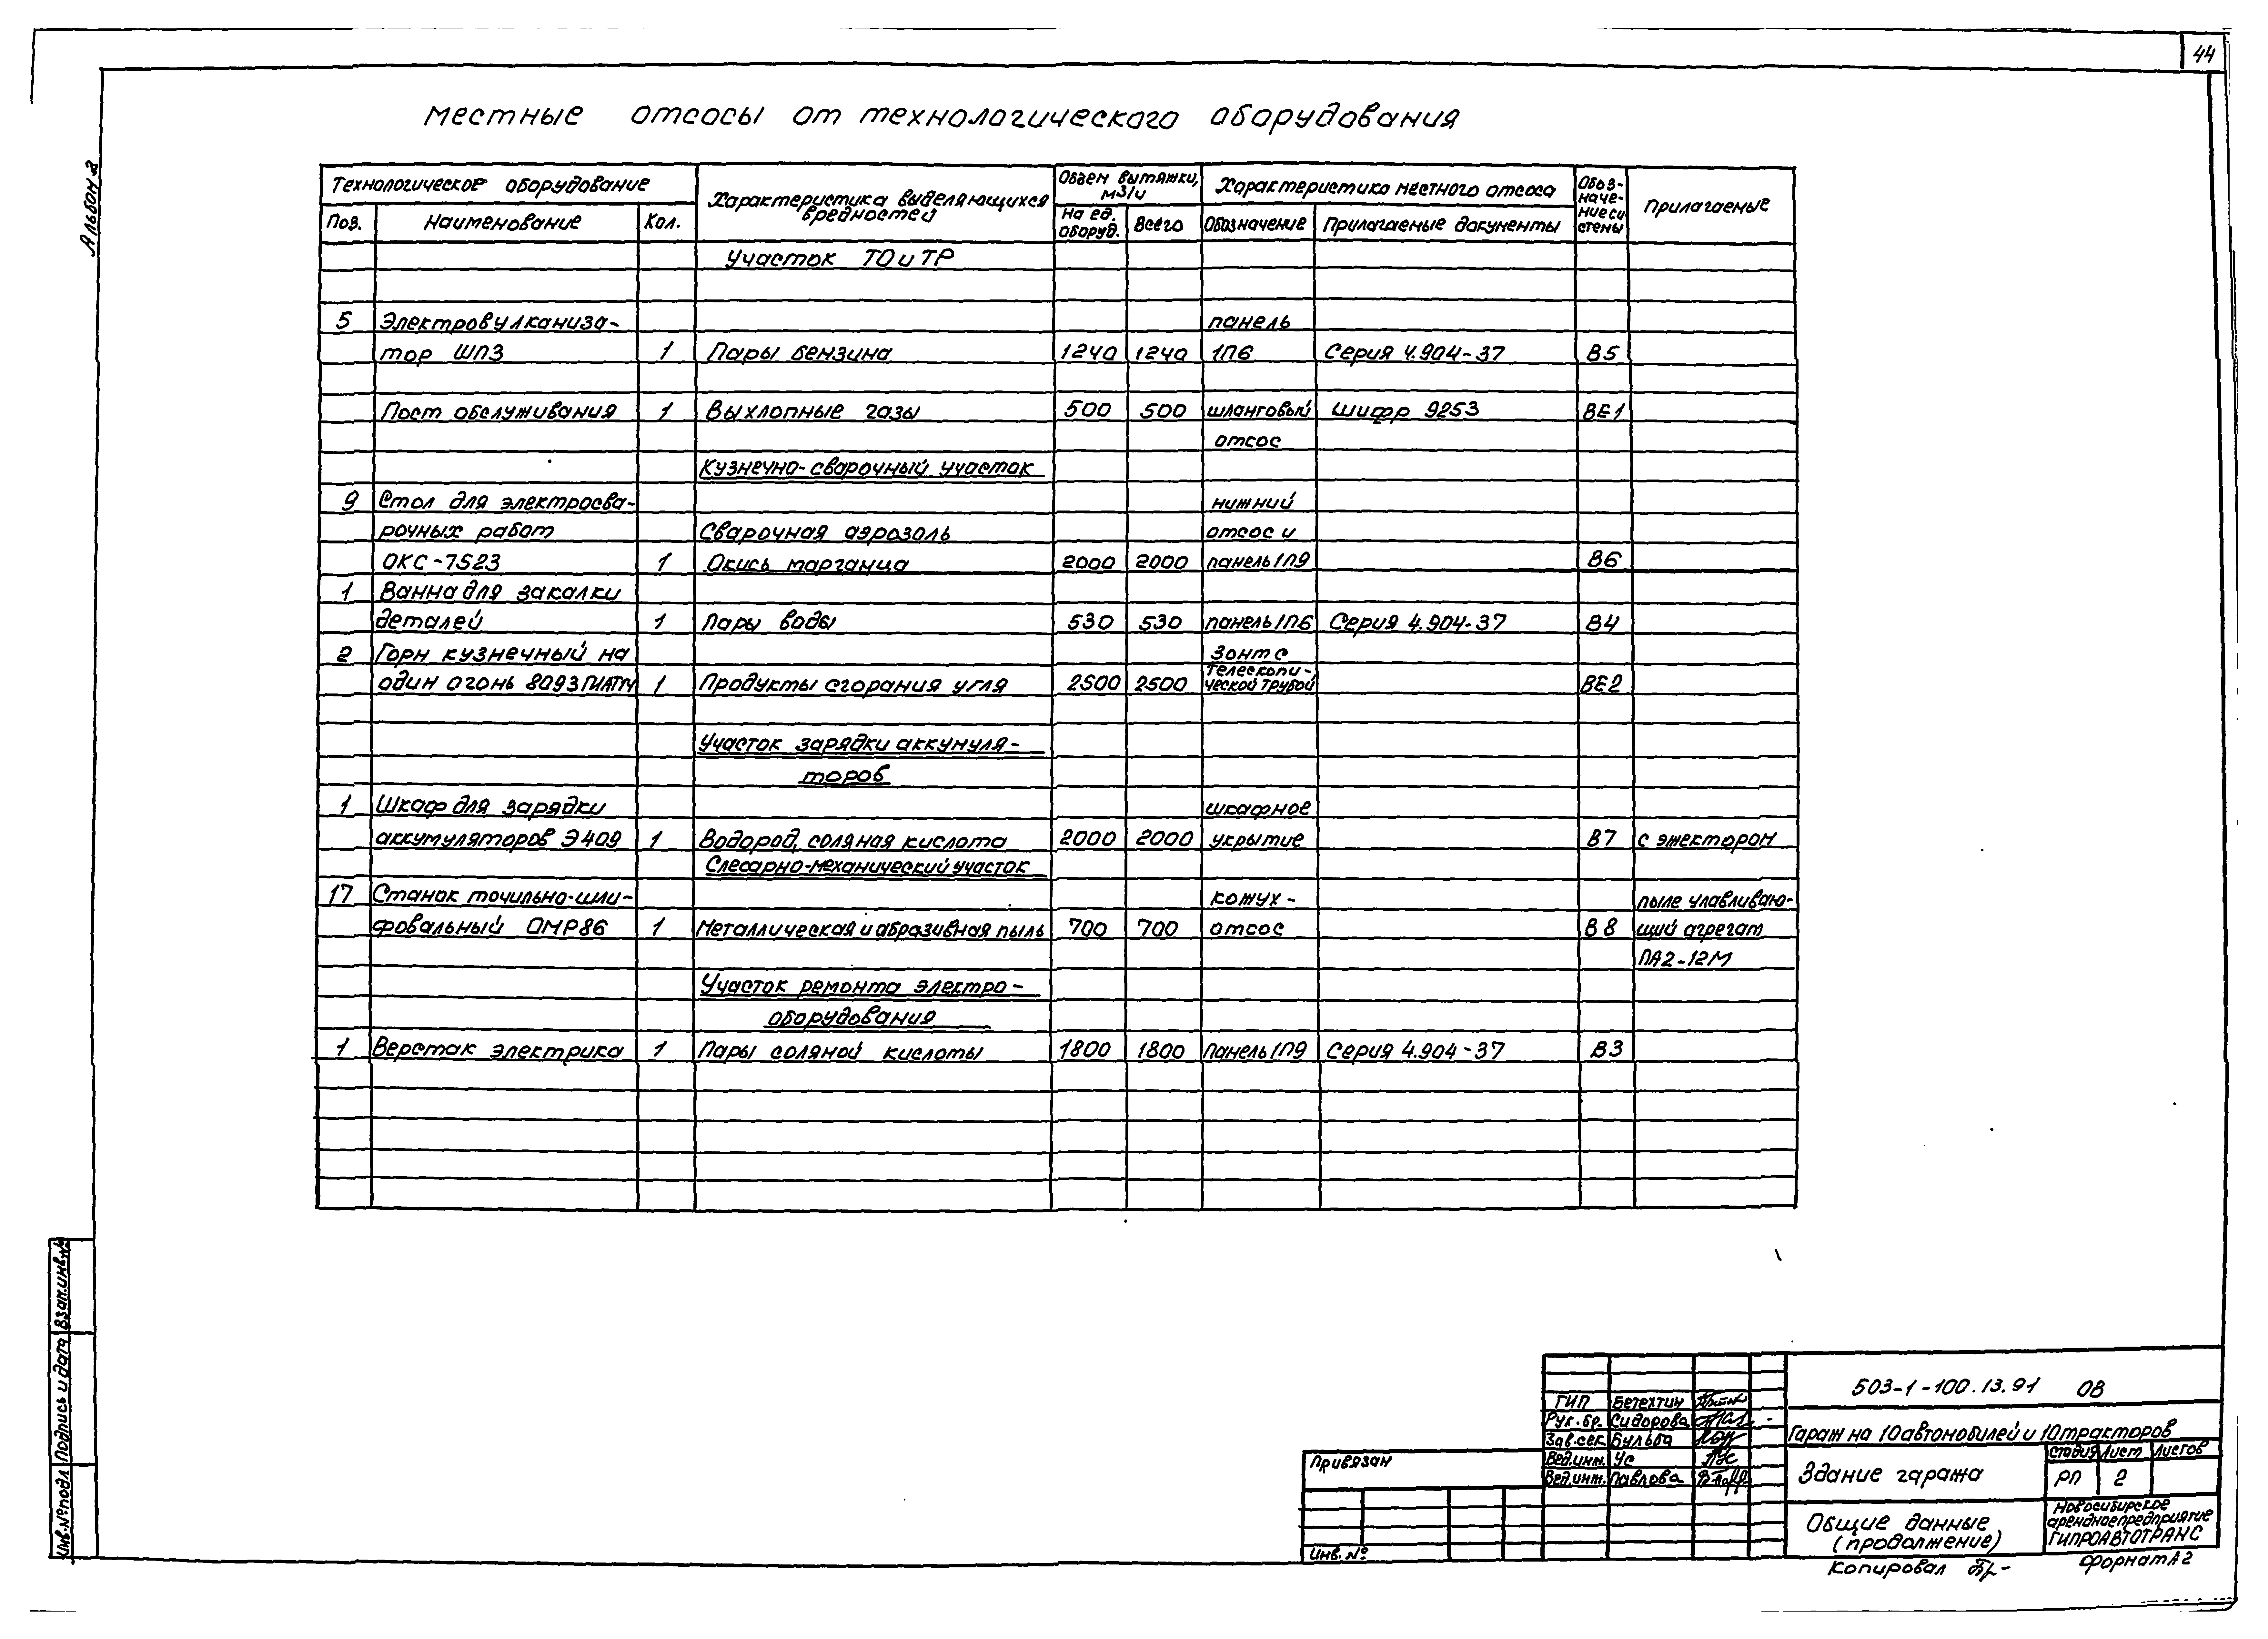 44
Альбом 2
местные отсосы от технологического оборудования
Технологическое оборудование
Характеристика выделяющихся вредностей
Объем вытяжки, м3/ч
Характеристика местного отсоса
Обоз-
наче-
ние си
стемы
Прилагаемые
Поз. Наименование Кол. На ед. оборуд. Всего Обозначение Прилагаемые документы
Участок ТО и ТР
5 Электровулканиза- панель
тор ШПЗ 1 Пары бензина 1240 1240 1П6 Серия 4.904-37 В5
Пост обслуживания 1 Выхлопные газы 500 500 шланговый шифр 9253 ВЕ1
отсос
Кузнечно-сварочный участок
9 Стол для электросва- нижний
рочных работ Сварочная аэрозоль отсос и
ОКС-7523 1 Окись марганца 2000 2000 панель 1П9 В6
1 Ванна для закалки
деталей 1 Пары воды 530 530 панель 1П6 Серия 4.904-37 В4
2 Горн кузнечный на Зонт с
один огонь 8093 1 Продукты сгорания угля 2500 2500 телескопи-
ческой трубой ВЕ2
Участок зарядки аккумуля-
торов
1 Шкаф для зарядки шкафное
аккумуляторов Э409 1 Водород, соляная кислота 2000 2000 укрытие В7 с эжектором
Слесарно-механический участок
17 Станок точильно-шли- кожух- пыле улавливаю-
фовальный ОМР86 1 Металлическая и абразивная пыль 700 700 отсос В8 щий агрегат
ПА2-12М
Участок ремонта электро-
оборудования
1 Верстак электрика 1 Пары соляной кислоты 1800 1800 Панель 1П9 Серия 4.904-37 В3
Взам.инв.№
Подпись и дата
Инв.№ подл.
Привязан
Инв. №
ГИП Бегехтин
Рук.бр. Сидорова
Зав.сек Бульба
Вед.инж. Ус
Вед.инж. Павлова
503-1-100.13.91 ОВ
Гараж на 10 автомобилей и 10 тракторов
Здание гаража
Стадия Лист Листов
РП 2
Общие данные
(продолжение)
Новосибирское
арендное предприятие
ГИПРОАВТОТРАНС
Копировал
Формат А2